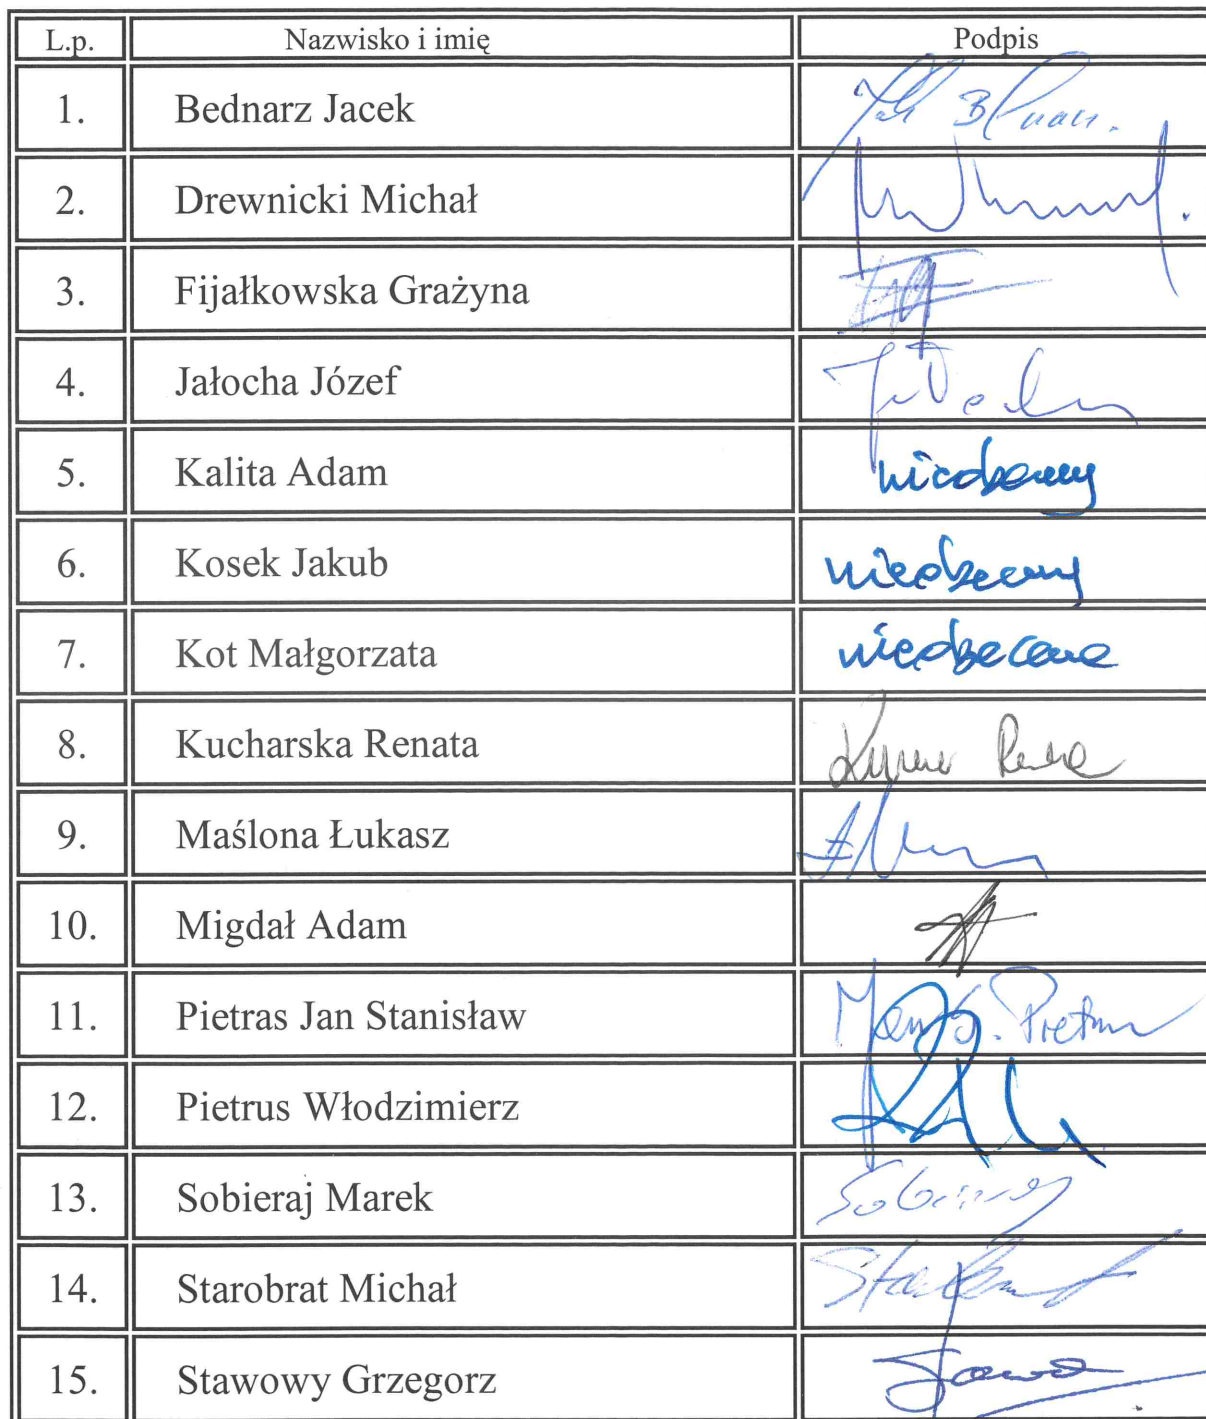 L.p. Nazwisko i imię Podpis
1. Bednarz Jacek
2. Drewnicki Michał
3. Fijałkowska Grażyna
4. Jałocha Józef
5. Kalita Adam nieobecny
6. Kosek Jakub nieobecny
7. Kot Małgorzata nieobecna
8. Kucharska Renata
9. Maślona Łukasz
10. Migdał Adam
11. Pietras Jan Stanisław Jan S. Pietras
12. Pietrus Włodzimierz
13. Sobieraj Marek Sobieraj
14. Starobrat Michał
15. Stawowy Grzegorz